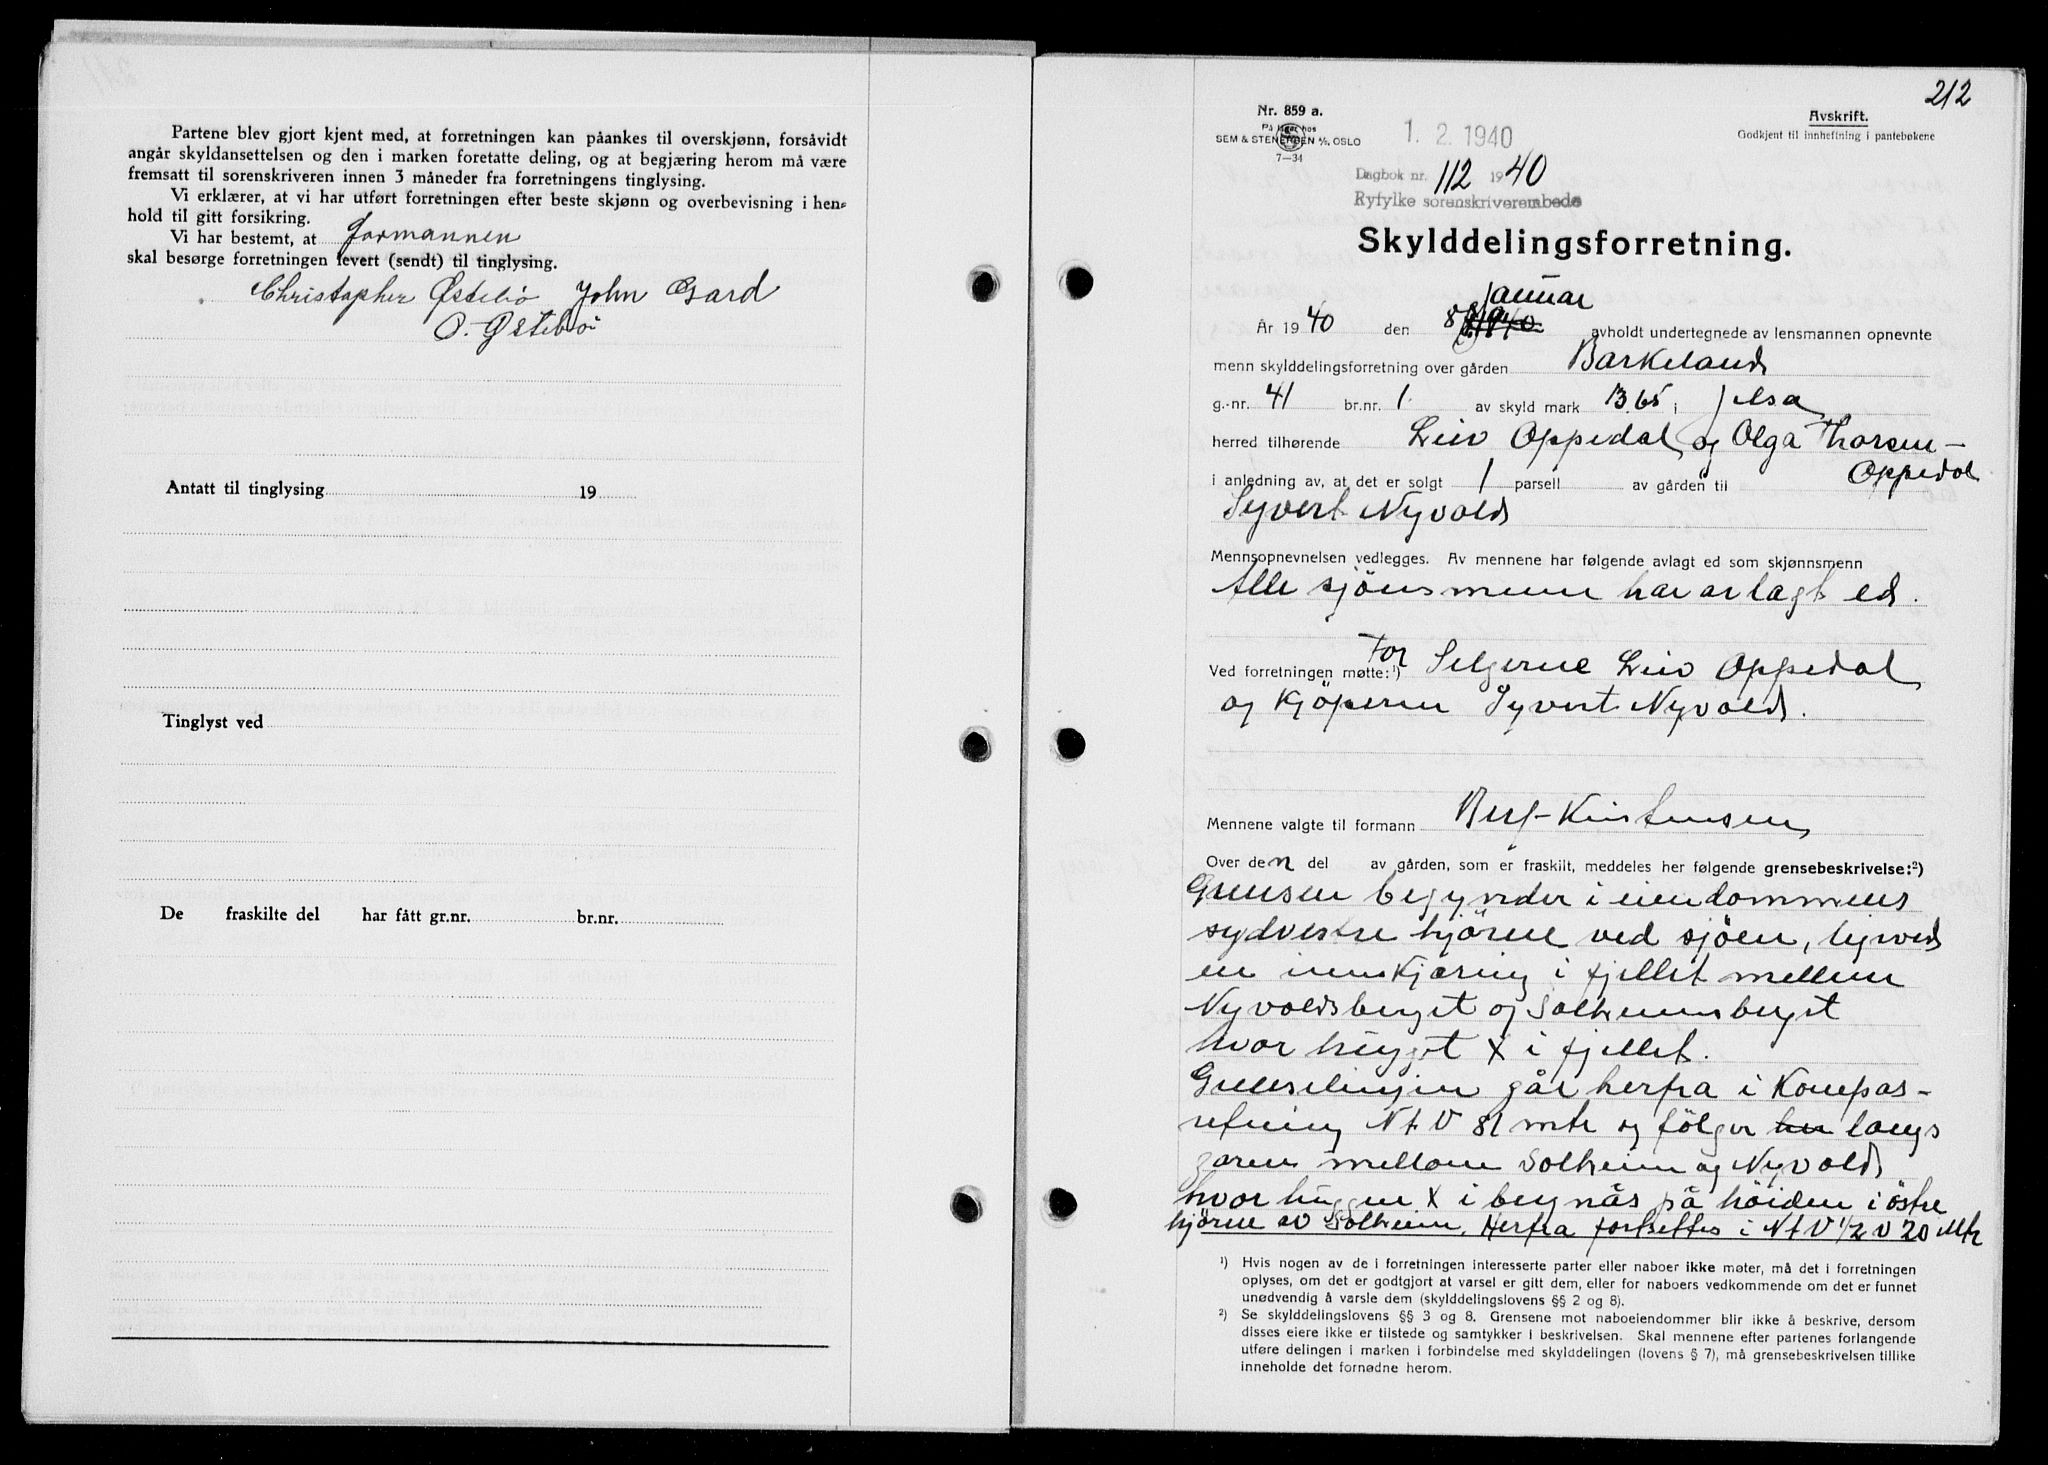 Partene blev gjort kjent med, at forretningen kan påankes til overskjønn, forsåvidt
angår skyldansettelsen og den i marken foretatte deling, og at begjæring herom må være
fremsatt til sorenskriveren innen 3 måneder fra forretningens tinglysing.
Vi erklærer, at vi har utført forretningen efter beste skjønn og overbevisning i hen-
hold til gitt forsikring.
Vi har bestemt, at formannen
skal besørge forretningen levert (sendt) til tinglysing.
Christopher Østebø John Gard
O. Østebø
Antatt til tinglysing 19
Tinglyst ved
De fraskilte del har fått gr.nr. br.nr.
212
Nr. 859 a.
På lager hos
SEM & STENERSEN A/S, OSLO
7—34
Avskrift.
Godkjent til innheftning i pantebøkene
1. 2. 1940
Dagbok nr. 112 1940
Ryfylke sorenskriverembede
Skylddelingsforretning.
År 1940 den 8 januar avholdt undertegnede av lensmannen opnevnte
menn skylddelingsforretning over gården Barkeland
g.-nr. 41 br.nr. 1. av skyld mark 13.65 i Jelsa
herred tilhørende Leiv Oppedal og Olga Thorsen-
Oppedal
i anledning av, at det er solgt 1 parsell av gården til
Syvert Nyvold
Mennsopnevnelsen vedlegges. Av mennene har følgende avlagt ed som skjønnsmenn
Alle sjönsmenn har avlagt ed.
Ved forretningen møtte:¹) For Selgerne Leiv Oppedal
og Kjöperen Syvert Nyvold.
Mennene valgte til formann Kristensen
Over den del av gården, som er fraskilt, meddeles her følgende grensebeskrivelse:²)
Grensen begynder i eiendommens
sydvestre hjörne ved sjöen, 
en innskjæring i fjellet mellem
Nyvoldsberget og Solheimsberget
hvor hugget X i fjellet.
Grenselinjen går herfra i Kompas-
retning N t V 81 mtr og fölger her langs
garen mellom Solheim og Nyvold
hvor huggen X i bergnås på höiden i östre
hjörne av Solheim. Herfra fortsettes i N t V 1/2 V 20 Mtr
¹) Hvis nogen av de i forretningen interesserte parter eller naboer ikke møter, må det i forretningen
oplyses, om det er godtgjort at varsel er gitt dem, eller for naboers vedkommende om det er funnet
unødvendig å varsle dem (skylddelingslovens §§ 2 og 8).
²) Se skylddelingslovens §§ 3 og 8. Grensene mot naboeiendommer blir ikke å beskrive, dersom
disses eiere ikke er tilstede og samtykker i beskrivelsen. Skal mennene efter partenes forlangende
utføre delingen i marken i forbindelse med skylddelingen (lovens § 7), må grensebeskrivelsen tillike
inneholde det fornødne herom.